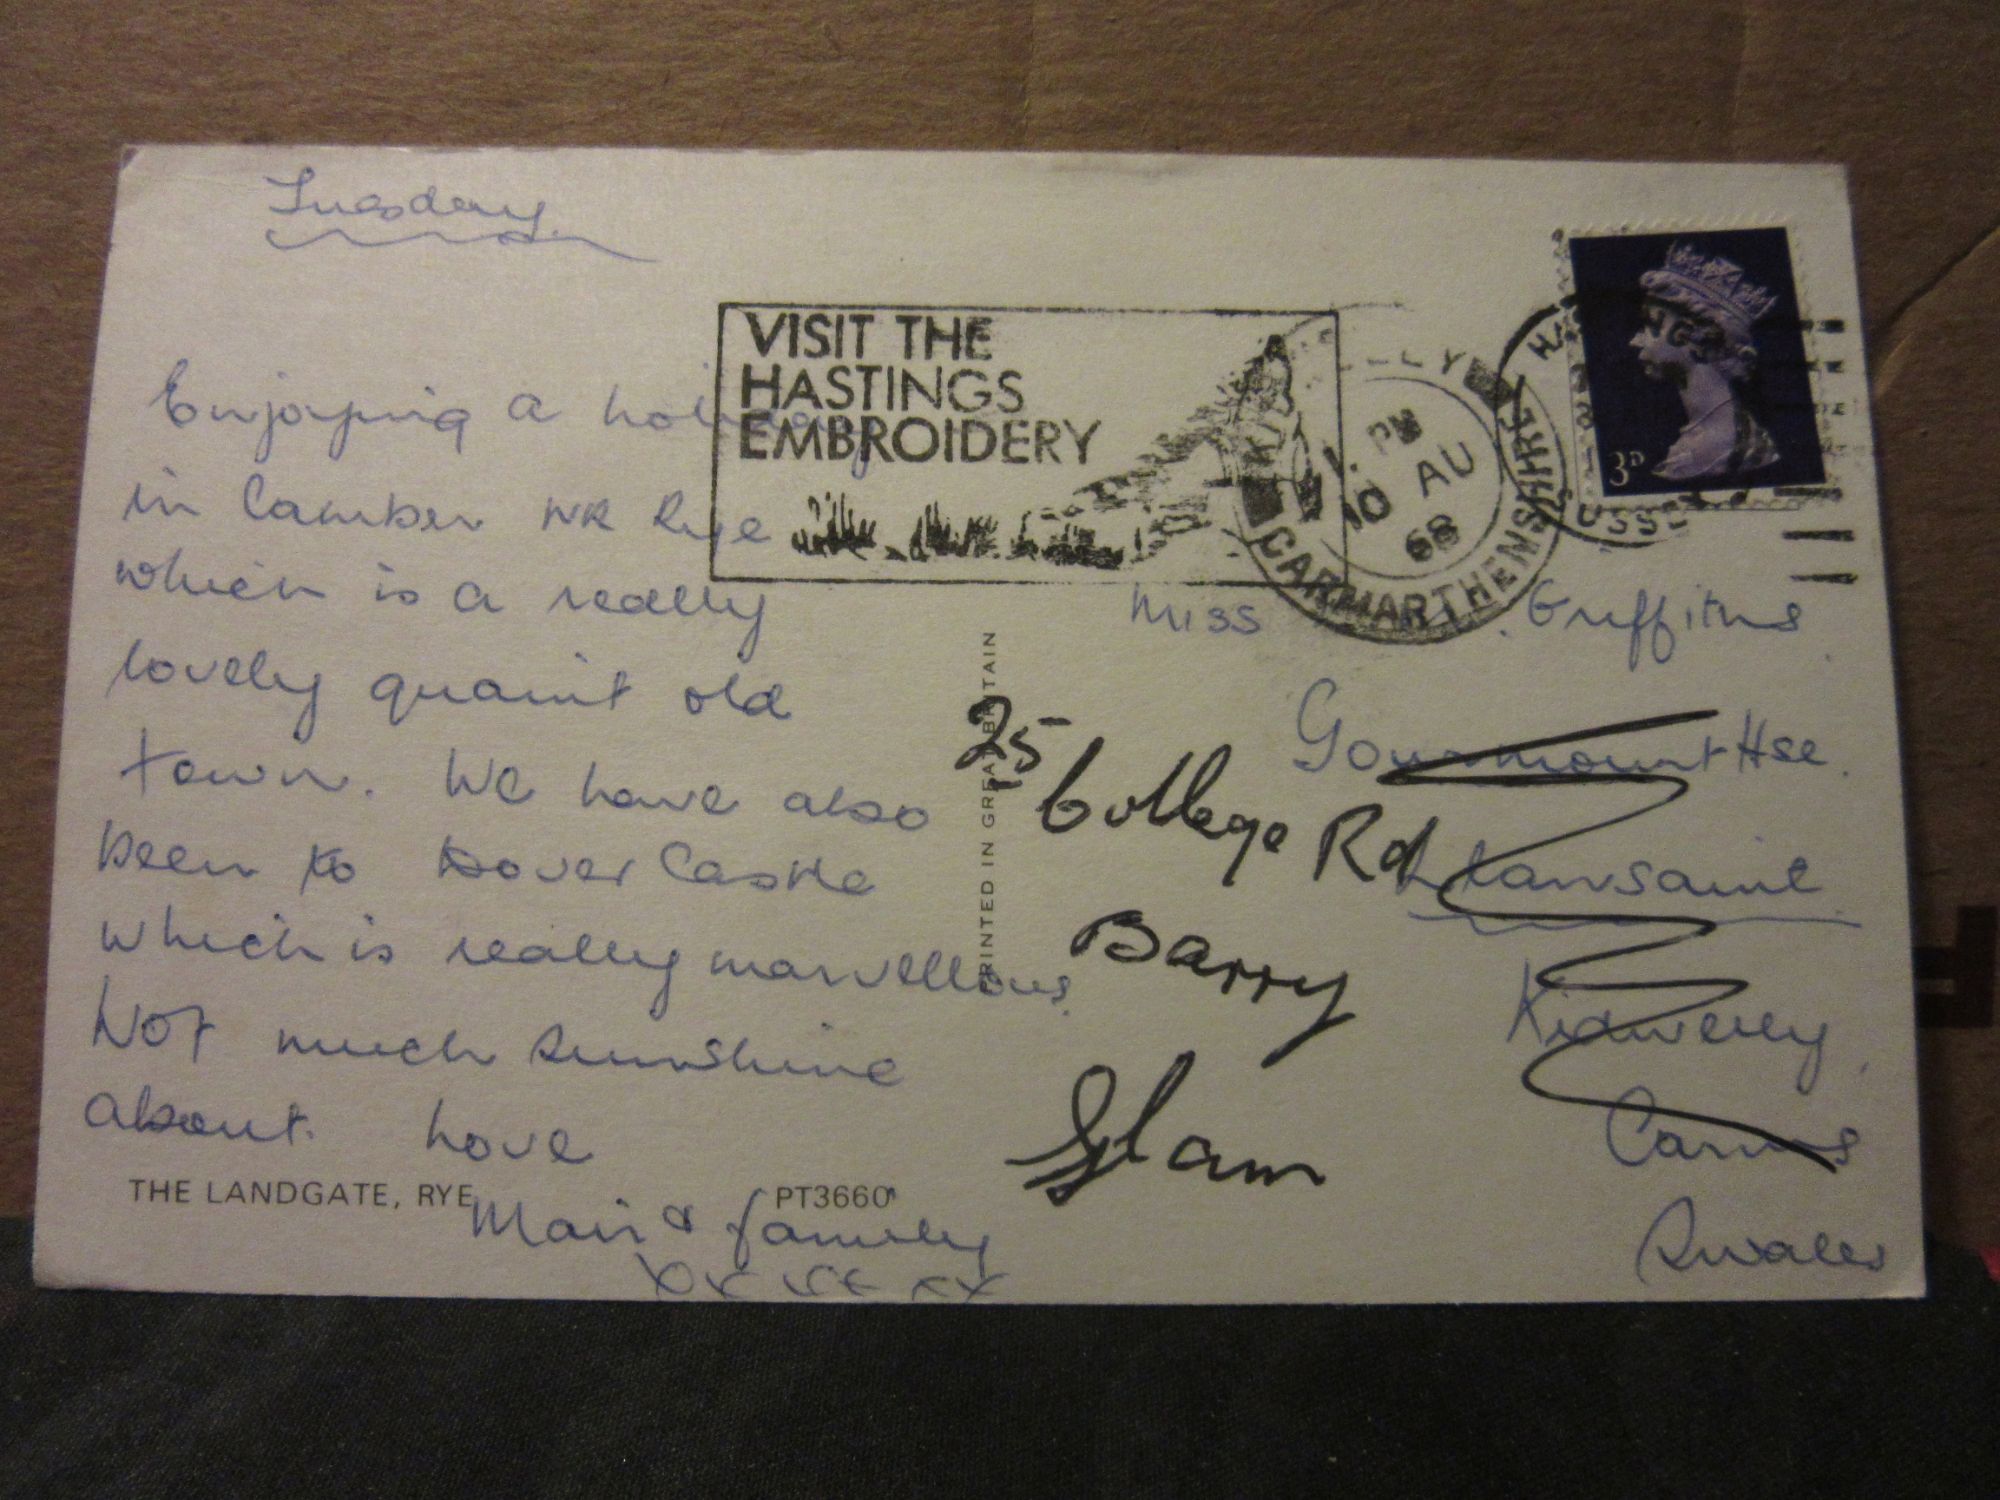 Tuesday
Enjoying a holiday
in Camber NR Rye
which is a really
lovely quaint old
town. We have also
been to Dover Castle
which is really marvellous.
Not much sunshine
about. Love
Mair & family
THE LANDGATE, RYE
PT3660
PRINTED IN GREAT BRITAIN
VISIT THE
HASTINGS
EMBROIDERY
1. PM
10 AU
68
CARMARTHENSHIRE
3D
Miss Griffiths
Hse.
Llansaint
Kidwelly,
Carms
S Wales
25 College Rd
Barry
Glam